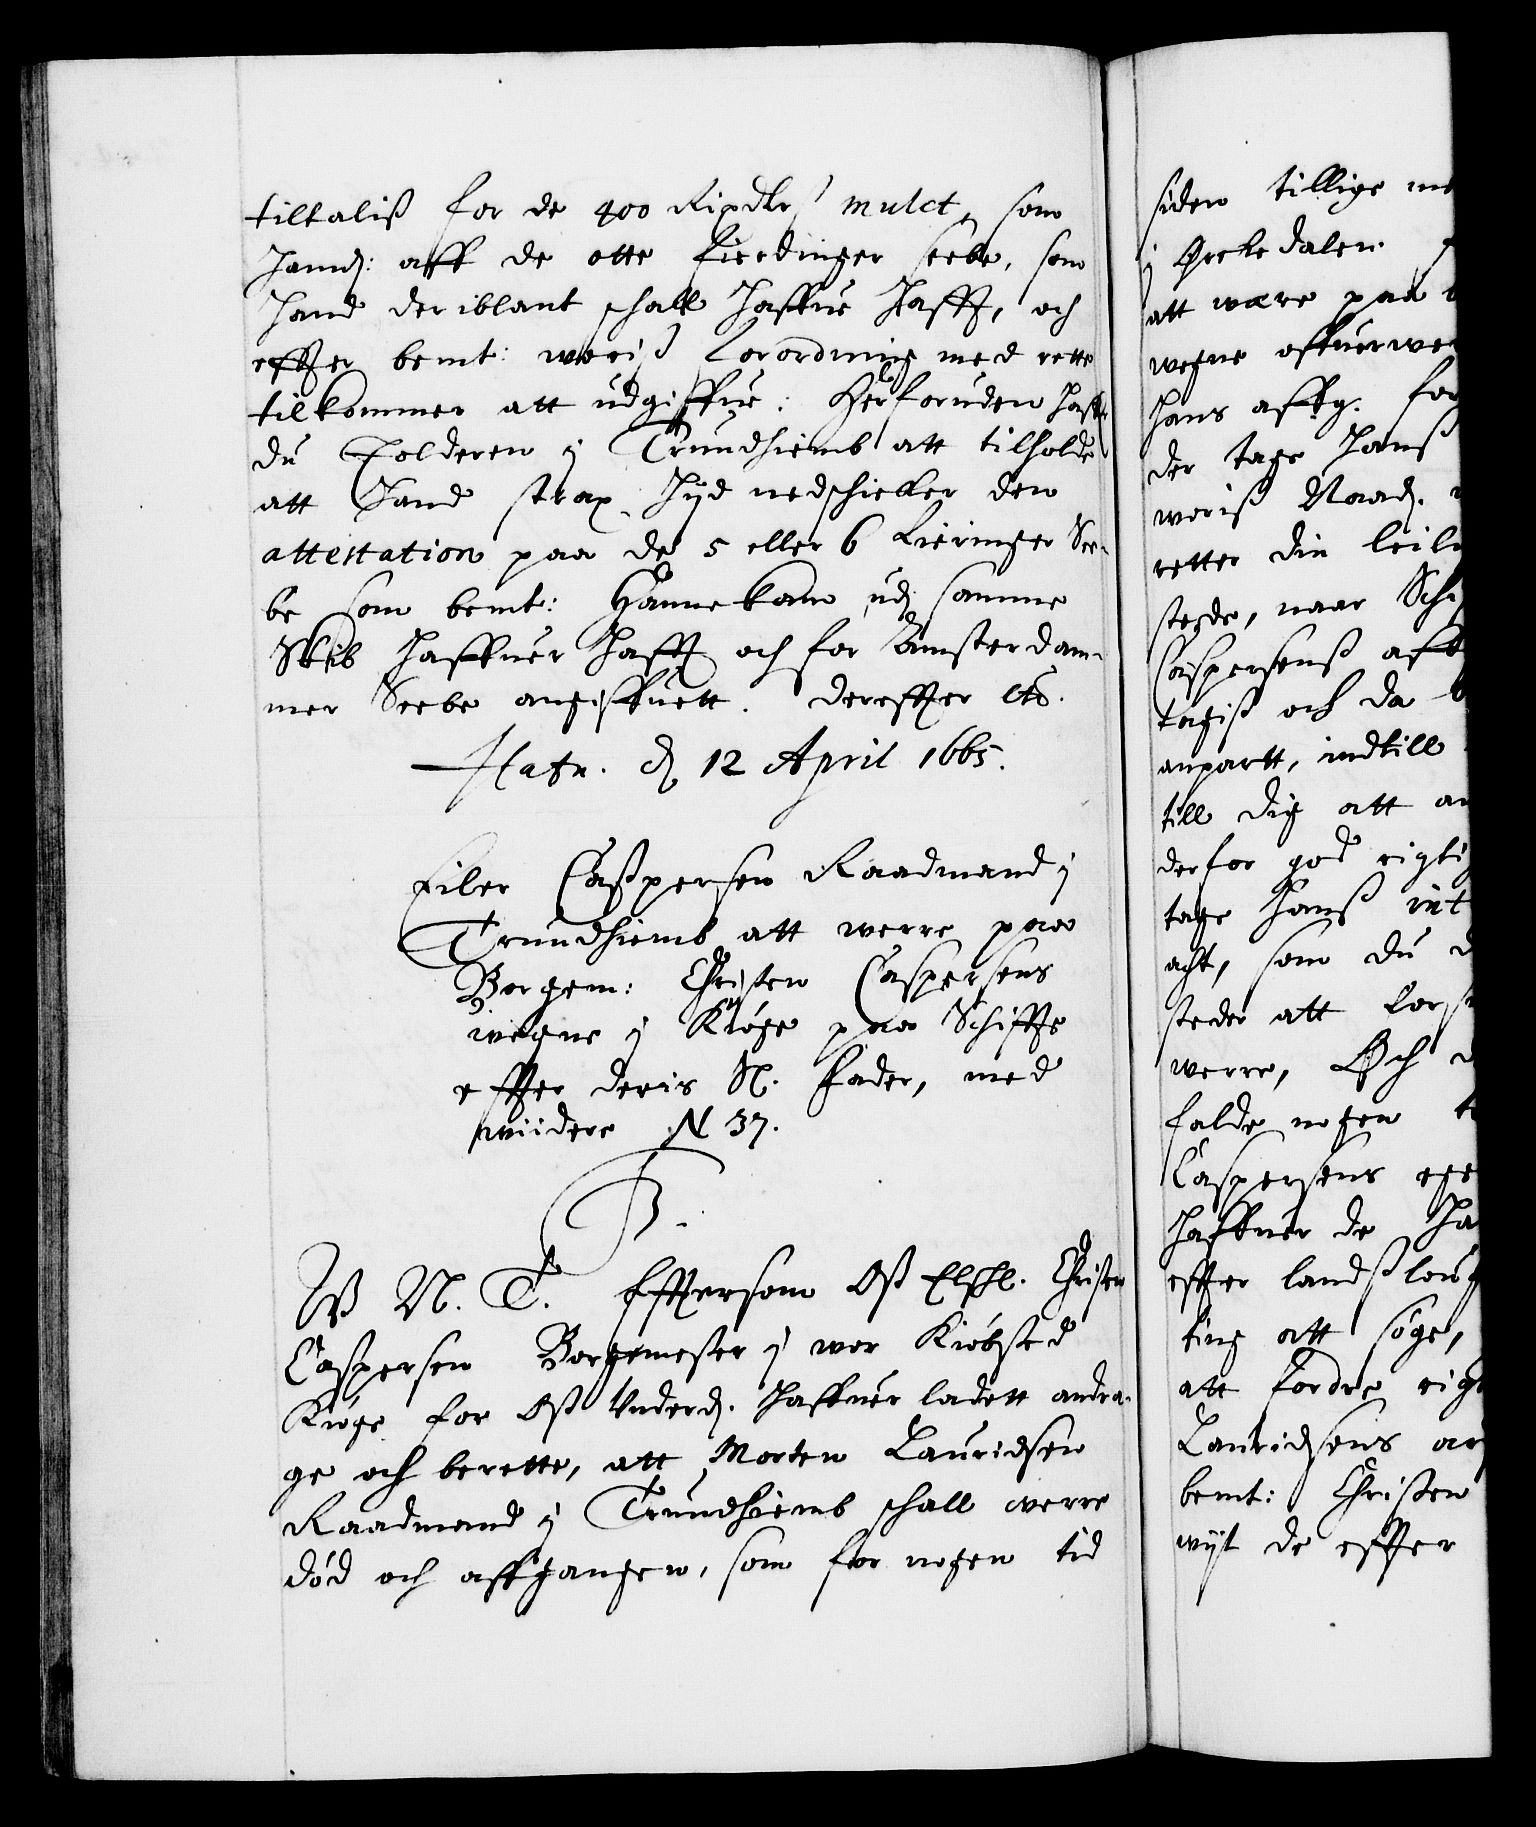 tiltaliß for de 400 Rixdlrs mulct, som
hand: aff de otte fierdinger seebe, som
hand deriblant schall haffue hafft, och
effter bemt: woris forordning med rette
tilkommer att udgiffue: Herforuden haffr
du Tolderen j Trundhiemb att tilholde
att hand strax hid nedschicker den
attestation paa de 5 eller 6 fieringer See-
be som bemt: Hannekam udj samme
Skib haffuer hafft och for Amsterdam-
mer Seebe angiffuett. Dereffter etc.
Hafn. d. 12 April 1665.
Eiler Caßpersen Raadmand j
Trundhiemb att werre paa
Borgem: Christen Caspersens
wegne j Kiøge paa Schiffte
effter deris S. fader, med
wiidere N 37.
F3.
W N. T. Efftersom Oß Elschl. Christen
Caspersen Borgemester j wor Kiøbsted
Kiøge for Oß Underd. haffuer ladett andra-
ge och berette, att Morten Lauridsen
Raadmand j Trundhiemb schall werre
död och affgangen, som for nogen tid
siden tillige
j Orckedalen
att være paa
wegne offuerwe
hans affg. for
der tage hanß
woriß Naad.
retter din leil
stede, naar Sch
Caspersenß aff
tagiß och da
anpartt, indtill
till dig att an
derfor god rigti
tage hanß int
acht, som du
steder att fors
werre, Och
falde nogen
Caspersens ege
haffuer de ha
effter landßlou
ting att søge,
att fordre rig
Lauridsens ar
bemt: Christen
wijt de effter